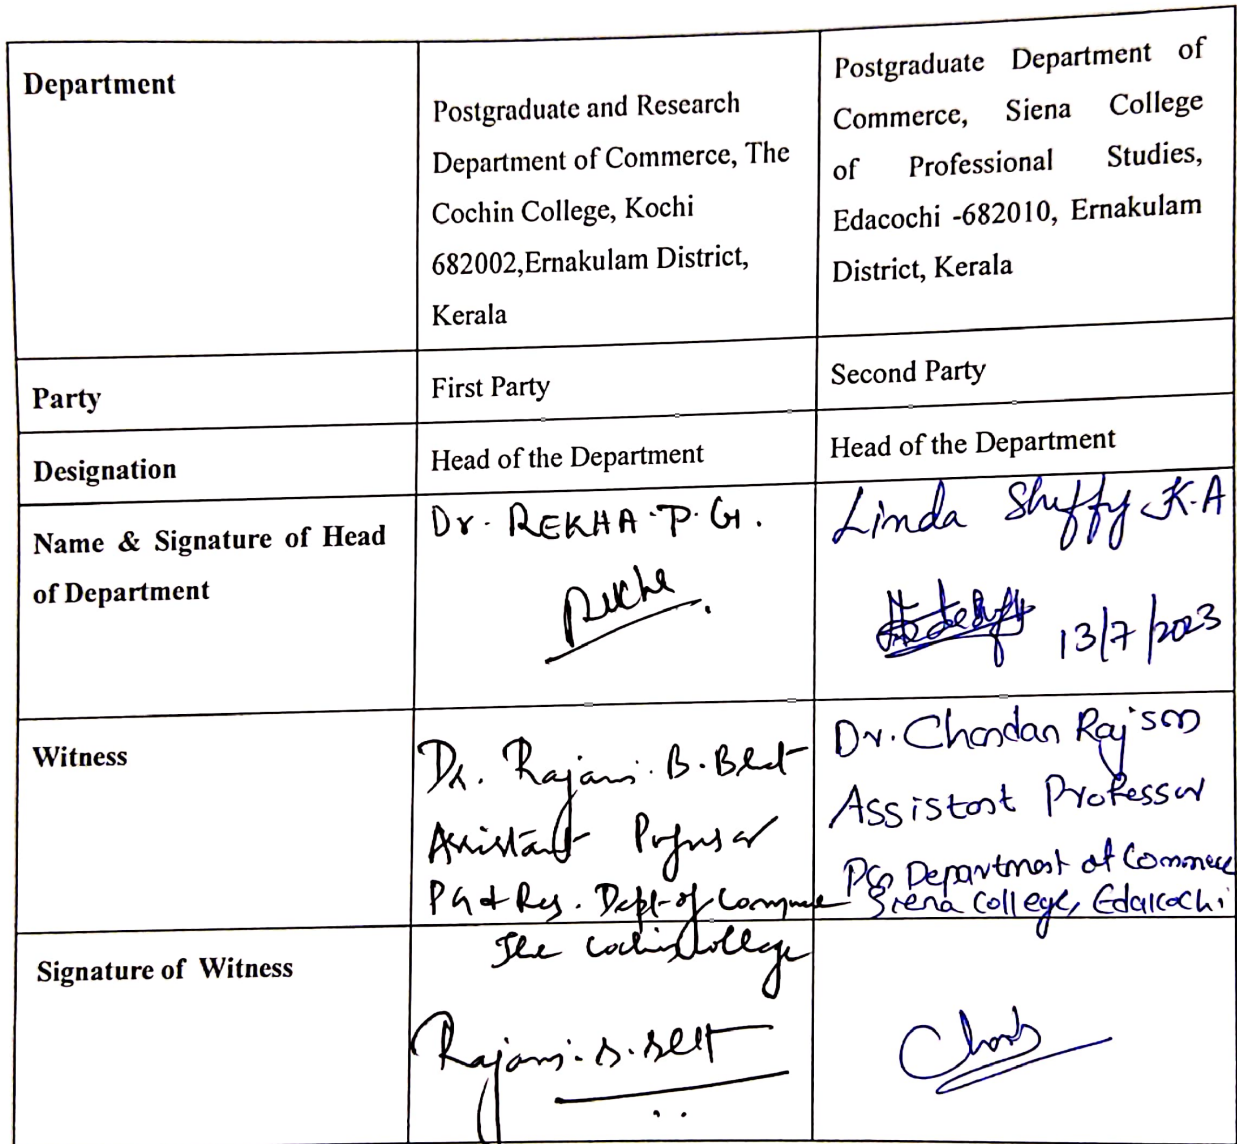 Department
Postgraduate and Research
Department of Commerce, The
Cochin College, Kochi
682002,Ernakulam District,
Kerala
Postgraduate Department of
Commerce, Siena College
of Professional Studies,
Edacochi -682010, Ernakulam
District, Kerala
Party
First Party
Second Party
Designation
Head of the Department
Head of the Department
Name & Signature of Head
of Department
Dr. REKHA.P.G.
Linda Sheffy K.A
13/7/2023
Witness
Dr. Rajani.B.Bhat
Assistant Professor
PG & Res. Dept-of Commerce
The Cochin College
Dr. Chandan Raj
Assistant Professor
PG Department of Commerce
Siena College, Edakochi
Signature of Witness